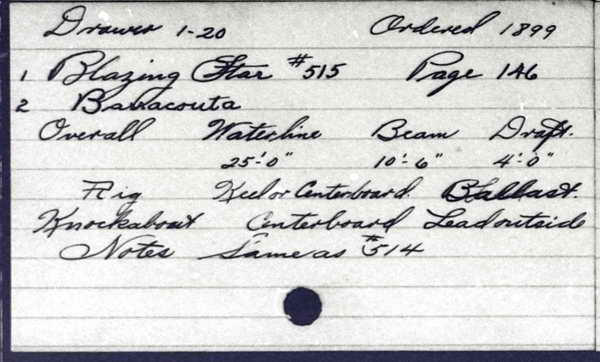 Drawer 1-20 Ordered 1899
1 Blazing Star #515 Page 146
2 Barracouta
Overall Waterline Beam Draft.
25'-0" 10'-6" 4'-0"
Rig Keel or Centerboard. Ballast.
Knockabout Centerboard Lead outside
Notes Same as #514